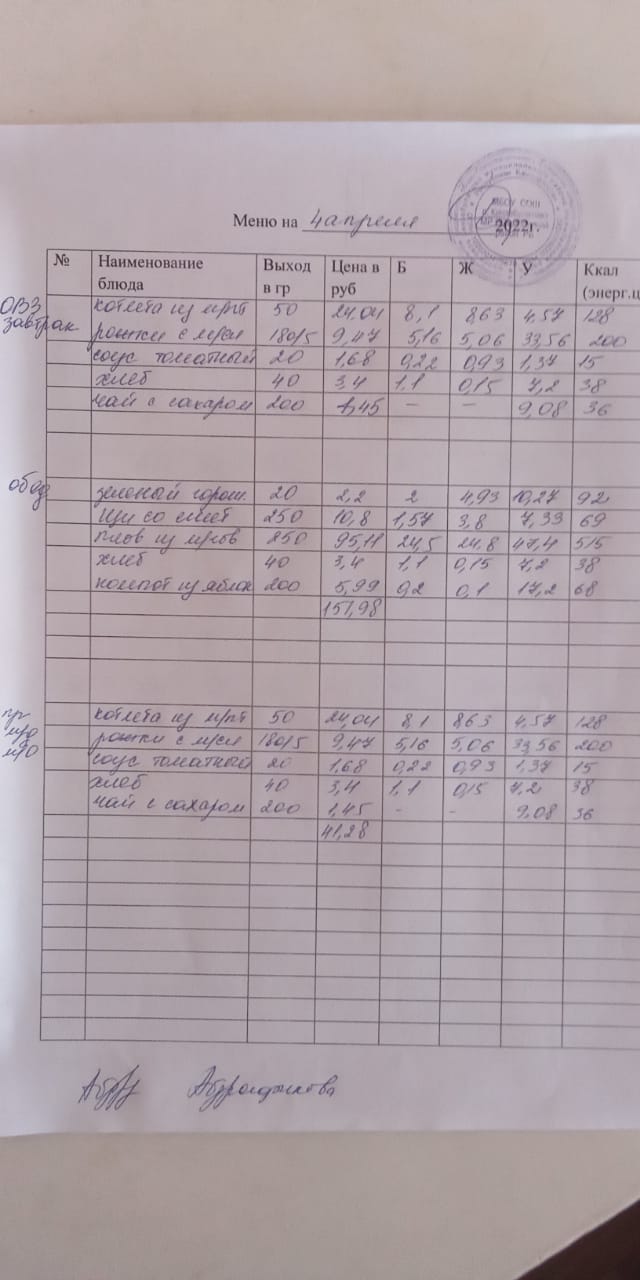 МБОУ СОШ
Меню на 4 апреля 2022г.
№ Наименование блюда Выход в гр Цена в руб Б Ж У Ккал (энерг.ц
ОВЗ завтрак
котлета из 50 24,04 8,1 8,63 4,57 128
рожки с 180/5 9,47 5,16 5,06 33,56 200
соус томатный 20 1,68 0,22 0,93 1,37 15
хлеб 40 3,4 1,1 0,15 7,2 38
чай с сахаром 200 1,45 – – 9,08 36
обед
зеленый горош. 20 2,2 2 4,93 10,27 92
щи со смет 250 10,8 1,57 3,8 7,33 69
плов из 250 95,11 24,5 24,8 47,4 515
хлеб 40 3,4 1,1 0,15 7,2 38
компот из яблок 200 5,99 0,2 0,1 17,2 68
151,98
котлета из 50 24,04 8,1 8,63 4,57 128
рожки с 180/5 9,47 5,16 5,06 33,56 200
соус томатный 20 1,68 0,22 0,93 1,37 15
хлеб 40 3,4 1,1 0,15 7,2 38
чай с сахаром 200 1,45 - - 9,08 36
41,28